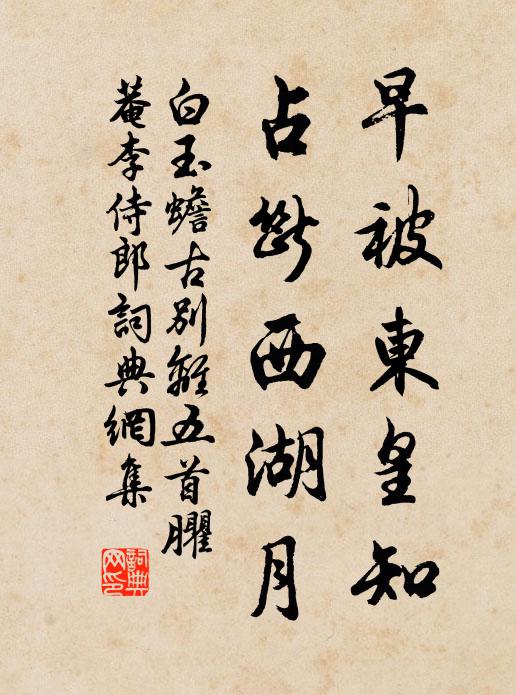 早被東皇知
占斷西湖月
白玉蟾古別離五首臞
菴李侍郎詞典網集
詞典网印